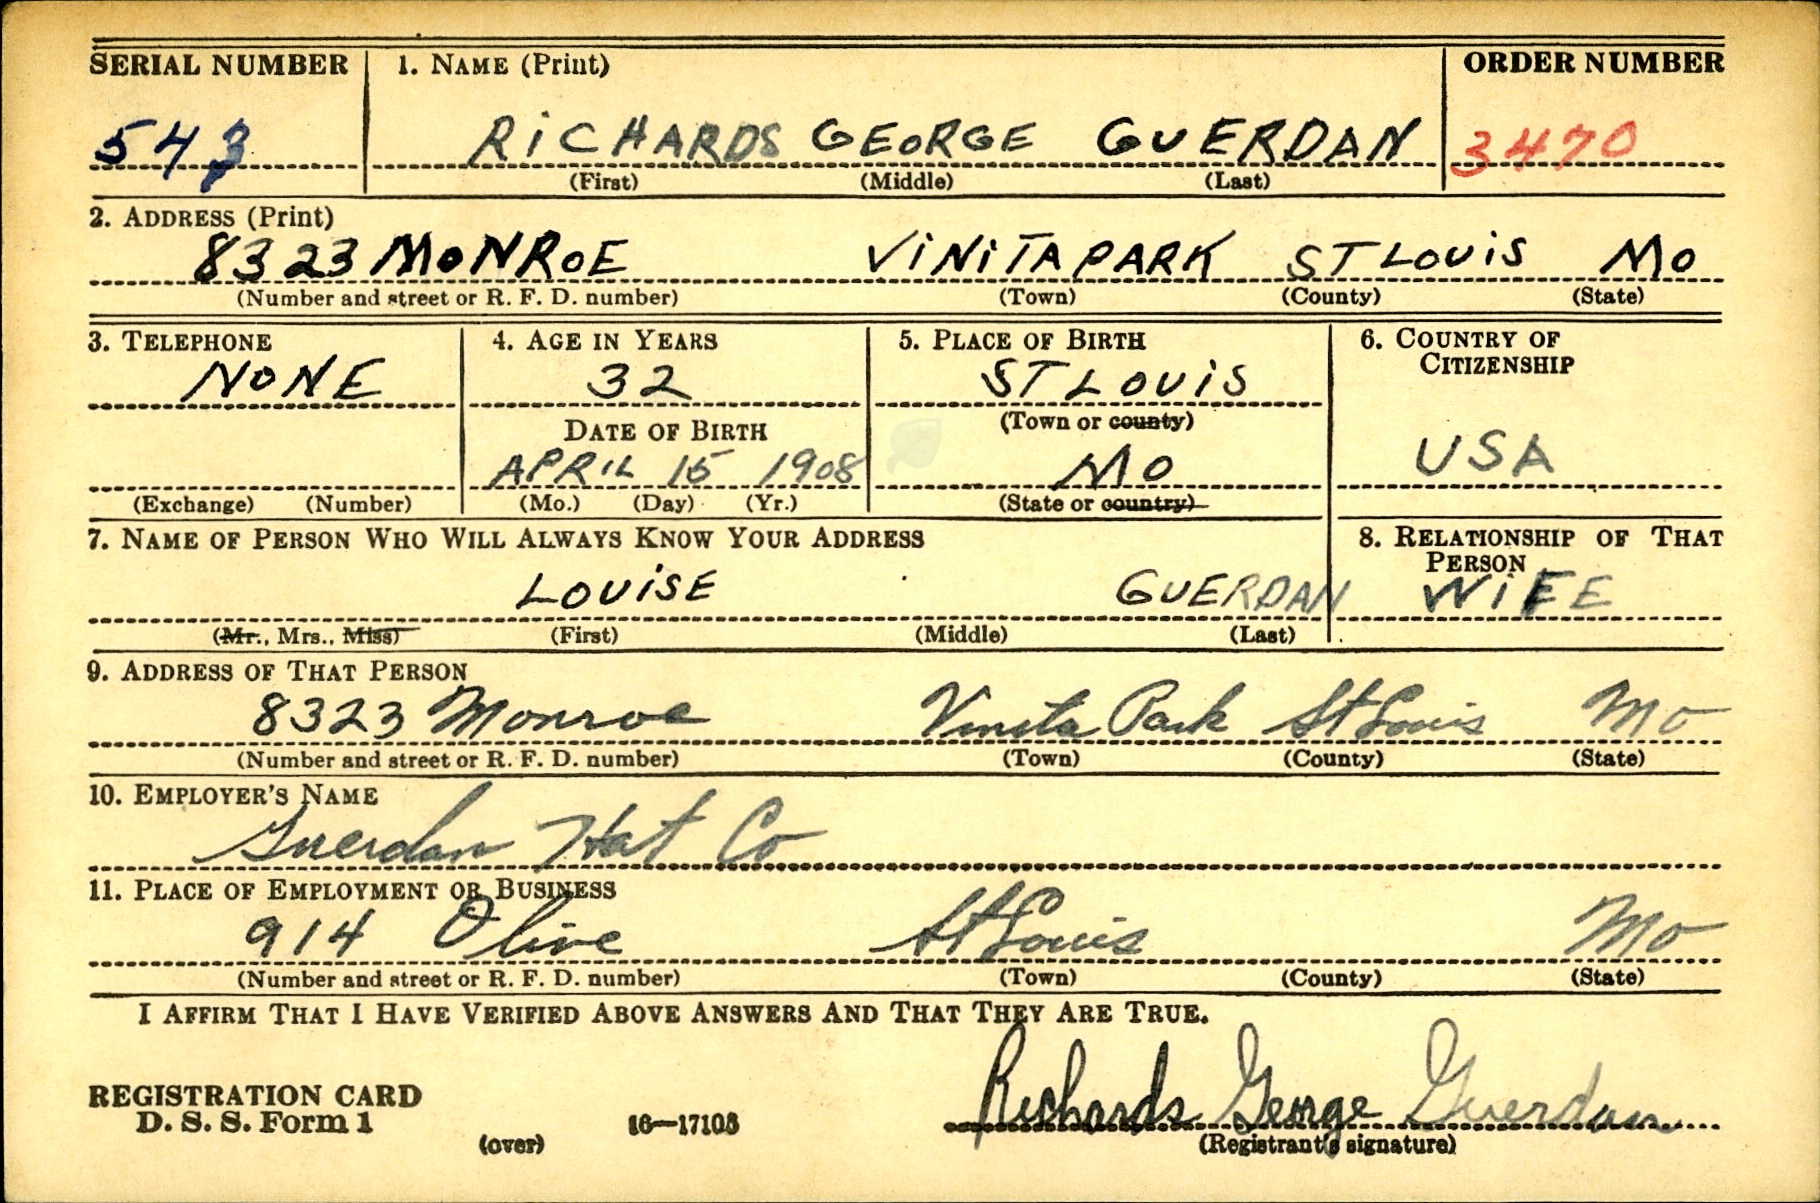 SERIAL NUMBER 1. NAME (Print) ORDER NUMBER
543 RICHARDS GEORGE GUERDAN 3470
(First) (Middle) (Last)
2. ADDRESS (Print)
8323 MONROE VINITA PARK ST LOUIS MO
(Number and street or R. F. D. number) (Town) (County) (State)
3. TELEPHONE 4. AGE IN YEARS 5. PLACE OF BIRTH 6. COUNTRY OF
CITIZENSHIP
NONE 32 ST LOUIS
(Town or county)
DATE OF BIRTH
APRIL 15 1908 MO USA
(Exchange) (Number) (Mo.) (Day) (Yr.) (State or country)
7. NAME OF PERSON WHO WILL ALWAYS KNOW YOUR ADDRESS 8. RELATIONSHIP OF THAT
PERSON
LOUISE GUERDAN WIFE
(Mr., Mrs., Miss) (First) (Middle) (Last)
9. ADDRESS OF THAT PERSON
8323 Monroe Vinita Park St Louis Mo
(Number and street or R. F. D. number) (Town) (County) (State)
10. EMPLOYER'S NAME
Guerdan Hat Co
11. PLACE OF EMPLOYMENT OR BUSINESS
914 Olive St Louis Mo
(Number and street or R. F. D. number) (Town) (County) (State)
I AFFIRM THAT I HAVE VERIFIED ABOVE ANSWERS AND THAT THEY ARE TRUE.
Richards George Guerdan
REGISTRATION CARD
D. S. S. Form 1 (over) 16—17105 (Registrant's signature)